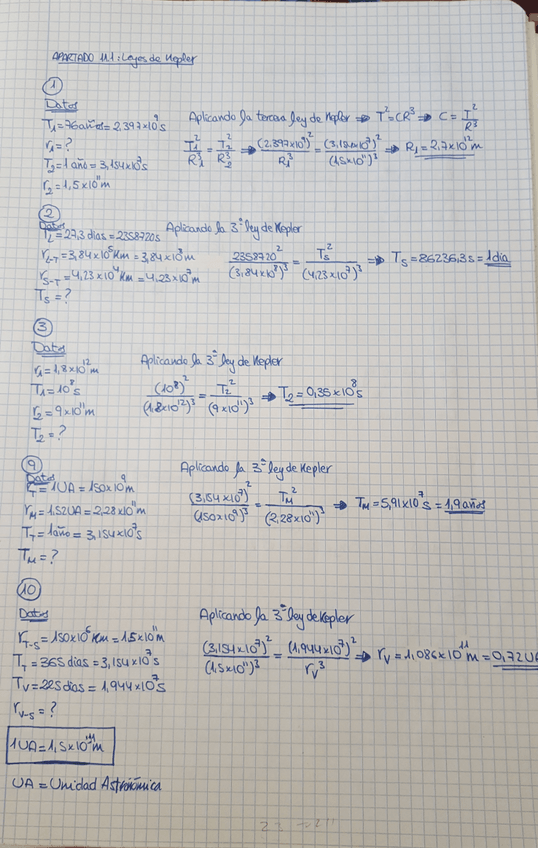 APARTADO 11.1: Leyes de Kepler
①
Datos
T₁=76años=2,397×10⁹s
r₁=?
T₂=1 año=3,154×10⁷s
r₂=1,5×10¹¹m
Aplicando la tercera ley de Kepler ⇒ T²=CR³ ⇒ C=T²/R³
T₁²/R₁³=T₂²/R₂³ ⇒ (2,397×10⁹)²/R₁³=(3,154×10⁷)²/(1,5×10¹¹)³ ⇒ R₁=2,7×10¹²m
②
Datos
T_L=27,3 días=2358720s
r_L-T=3,84×10⁵Km=3,84×10⁸m
r_S-T=4,23×10⁴Km=4,23×10⁷m
T_S=?
Aplicando la 3ª ley de Kepler
2358720²/(3,84×10⁸)³=T_S²/(4,23×10⁷)³ ⇒ T_S=86236,3s=1día
③
Datos
r₁=1,8×10¹²m
T₁=10⁸s
r₂=9×10¹¹m
T₂=?
Aplicando la 3ª ley de Kepler
(10⁸)²/(1,8×10¹²)³=T₂²/(9×10¹¹)³ ⇒ T₂=0,35×10⁸s
⑨
Datos
r_T=1UA=150×10⁹m
r_M=1,52UA=2,28×10¹¹m
T_T=1año=3,154×10⁷s
T_M=?
Aplicando la 3ª ley de Kepler
(3,154×10⁷)²/(150×10⁹)³=T_M²/(2,28×10¹¹)³ ⇒ T_M=5,91×10⁷s=1,9años
⑩
Datos
r_T-S=150×10⁶Km=1,5×10¹¹m
T_T=365 días=3,154×10⁷s
T_V=225días=1,944×10⁷s
r_V-S=?
Aplicando la 3ª ley de Kepler
(3,154×10⁷)²/(1,5×10¹¹)³=(1,944×10⁷)²/r_V³ ⇒ r_V=1,086×10¹¹m=0,72UA
1UA=1,5×10¹¹m
UA=Unidad Astronómica